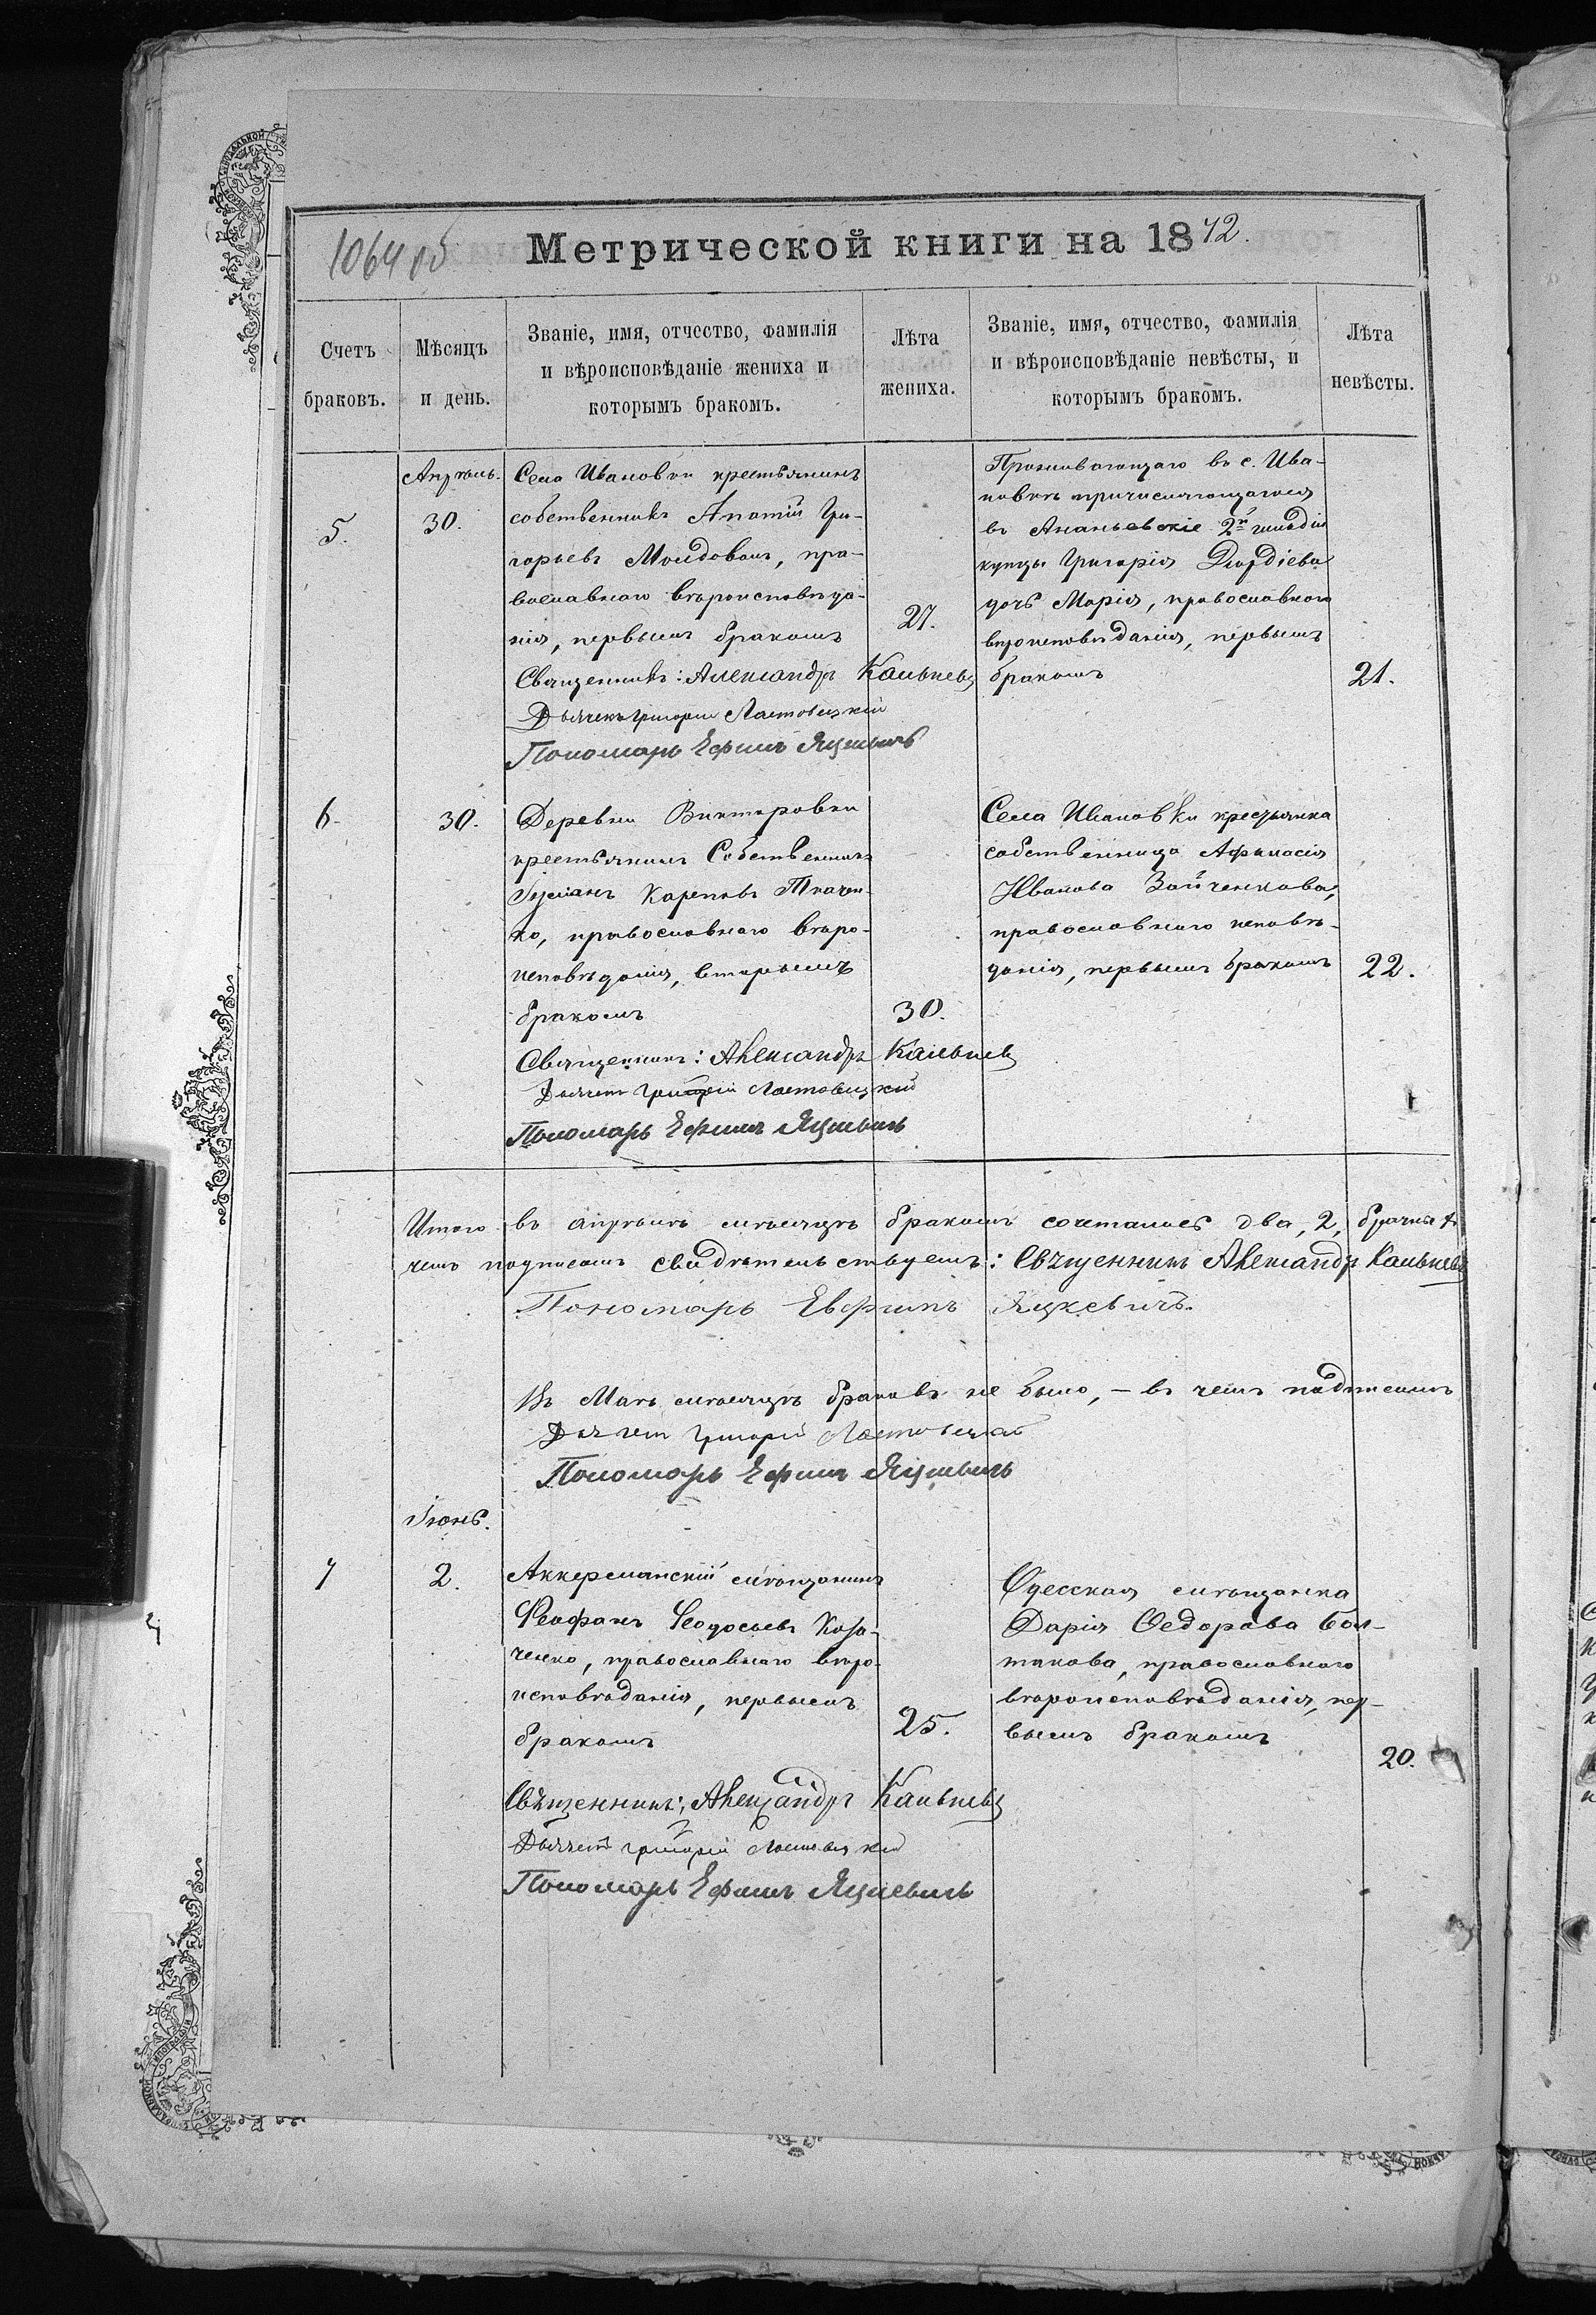 1064 об
Метрической книги на 1872.
Счетъ браковъ.
Мѣсяцъ и день.
Званіе, имя, отчество, фамилія и вѣроисповѣданіе жениха и которымъ бракомъ.
Лѣта жениха.
Званіе, имя, отчество, фамилія и вѣроисповѣданіе невѣсты, и которымъ бракомъ.
Лѣта невѣсты.
Апрѣль.
5.
30.
Села Ивановки крестьянинъ
собственникъ Ипатій Гри-
горьевъ Молдованъ, пра-
вославнаго вѣроисповѣда-
нія, первымъ бракомъ
27.
Священникъ: Александръ Кальневъ
Дьячекъ Григорій Ластовецкій
Пономарь Ефимъ Яцкевичъ
Проживающаго въ с. Ива-
новкѣ причисляющагося
въ Ананьевскіе 2й гильдіи
купцы Григорія Діордіева
дочь Марія, православнаго
вѣроисповѣданія, первымъ
бракомъ
21.
6.
30.
Деревни Викторовки
крестьянинъ Собственникъ
Іуліанъ Карповъ Ткачен-
ко, православнаго вѣро-
исповѣданія, вторымъ
бракомъ
30.
Священникъ: Александръ Кальневъ
Дьячекъ Григорій Ластовецкій
Пономарь Ефимъ Яцкевичъ
Села Ивановки крестьянка
собственница Афанасія
Иванова Зайченкова,
православнаго исповѣ-
данія, первымъ бракомъ
22.
Итого въ апрѣлѣ мѣсяцѣ бракомъ сочетались два, 2,
чемъ подписомъ свидѣтельствуемъ: Священникъ Александръ Кальневъ
Пономарь Евфимъ Яцкевичъ.
Въ Маѣ мѣсяцѣ браковъ не было, – въ чемъ
Дьячекъ Григорій Ластовецкій
Пономарь Ефимъ Яцкевичъ
Іюнь.
7
2.
Аккерманскій мѣщанинъ
Феофанъ Ѳеодосьевъ Коза-
ченко, православнаго вѣро-
исповѣданія, первымъ
бракомъ
25.
Священникъ: Александръ Кальневъ
Дьячекъ Григорій Ластовецкій
Пономарь Ефимъ Яцкевичъ
Одесская мѣщанка
Дарія Ѳедорова Бол-
такова, православнаго
вѣроисповѣданія, пер-
вымъ бракомъ
20.